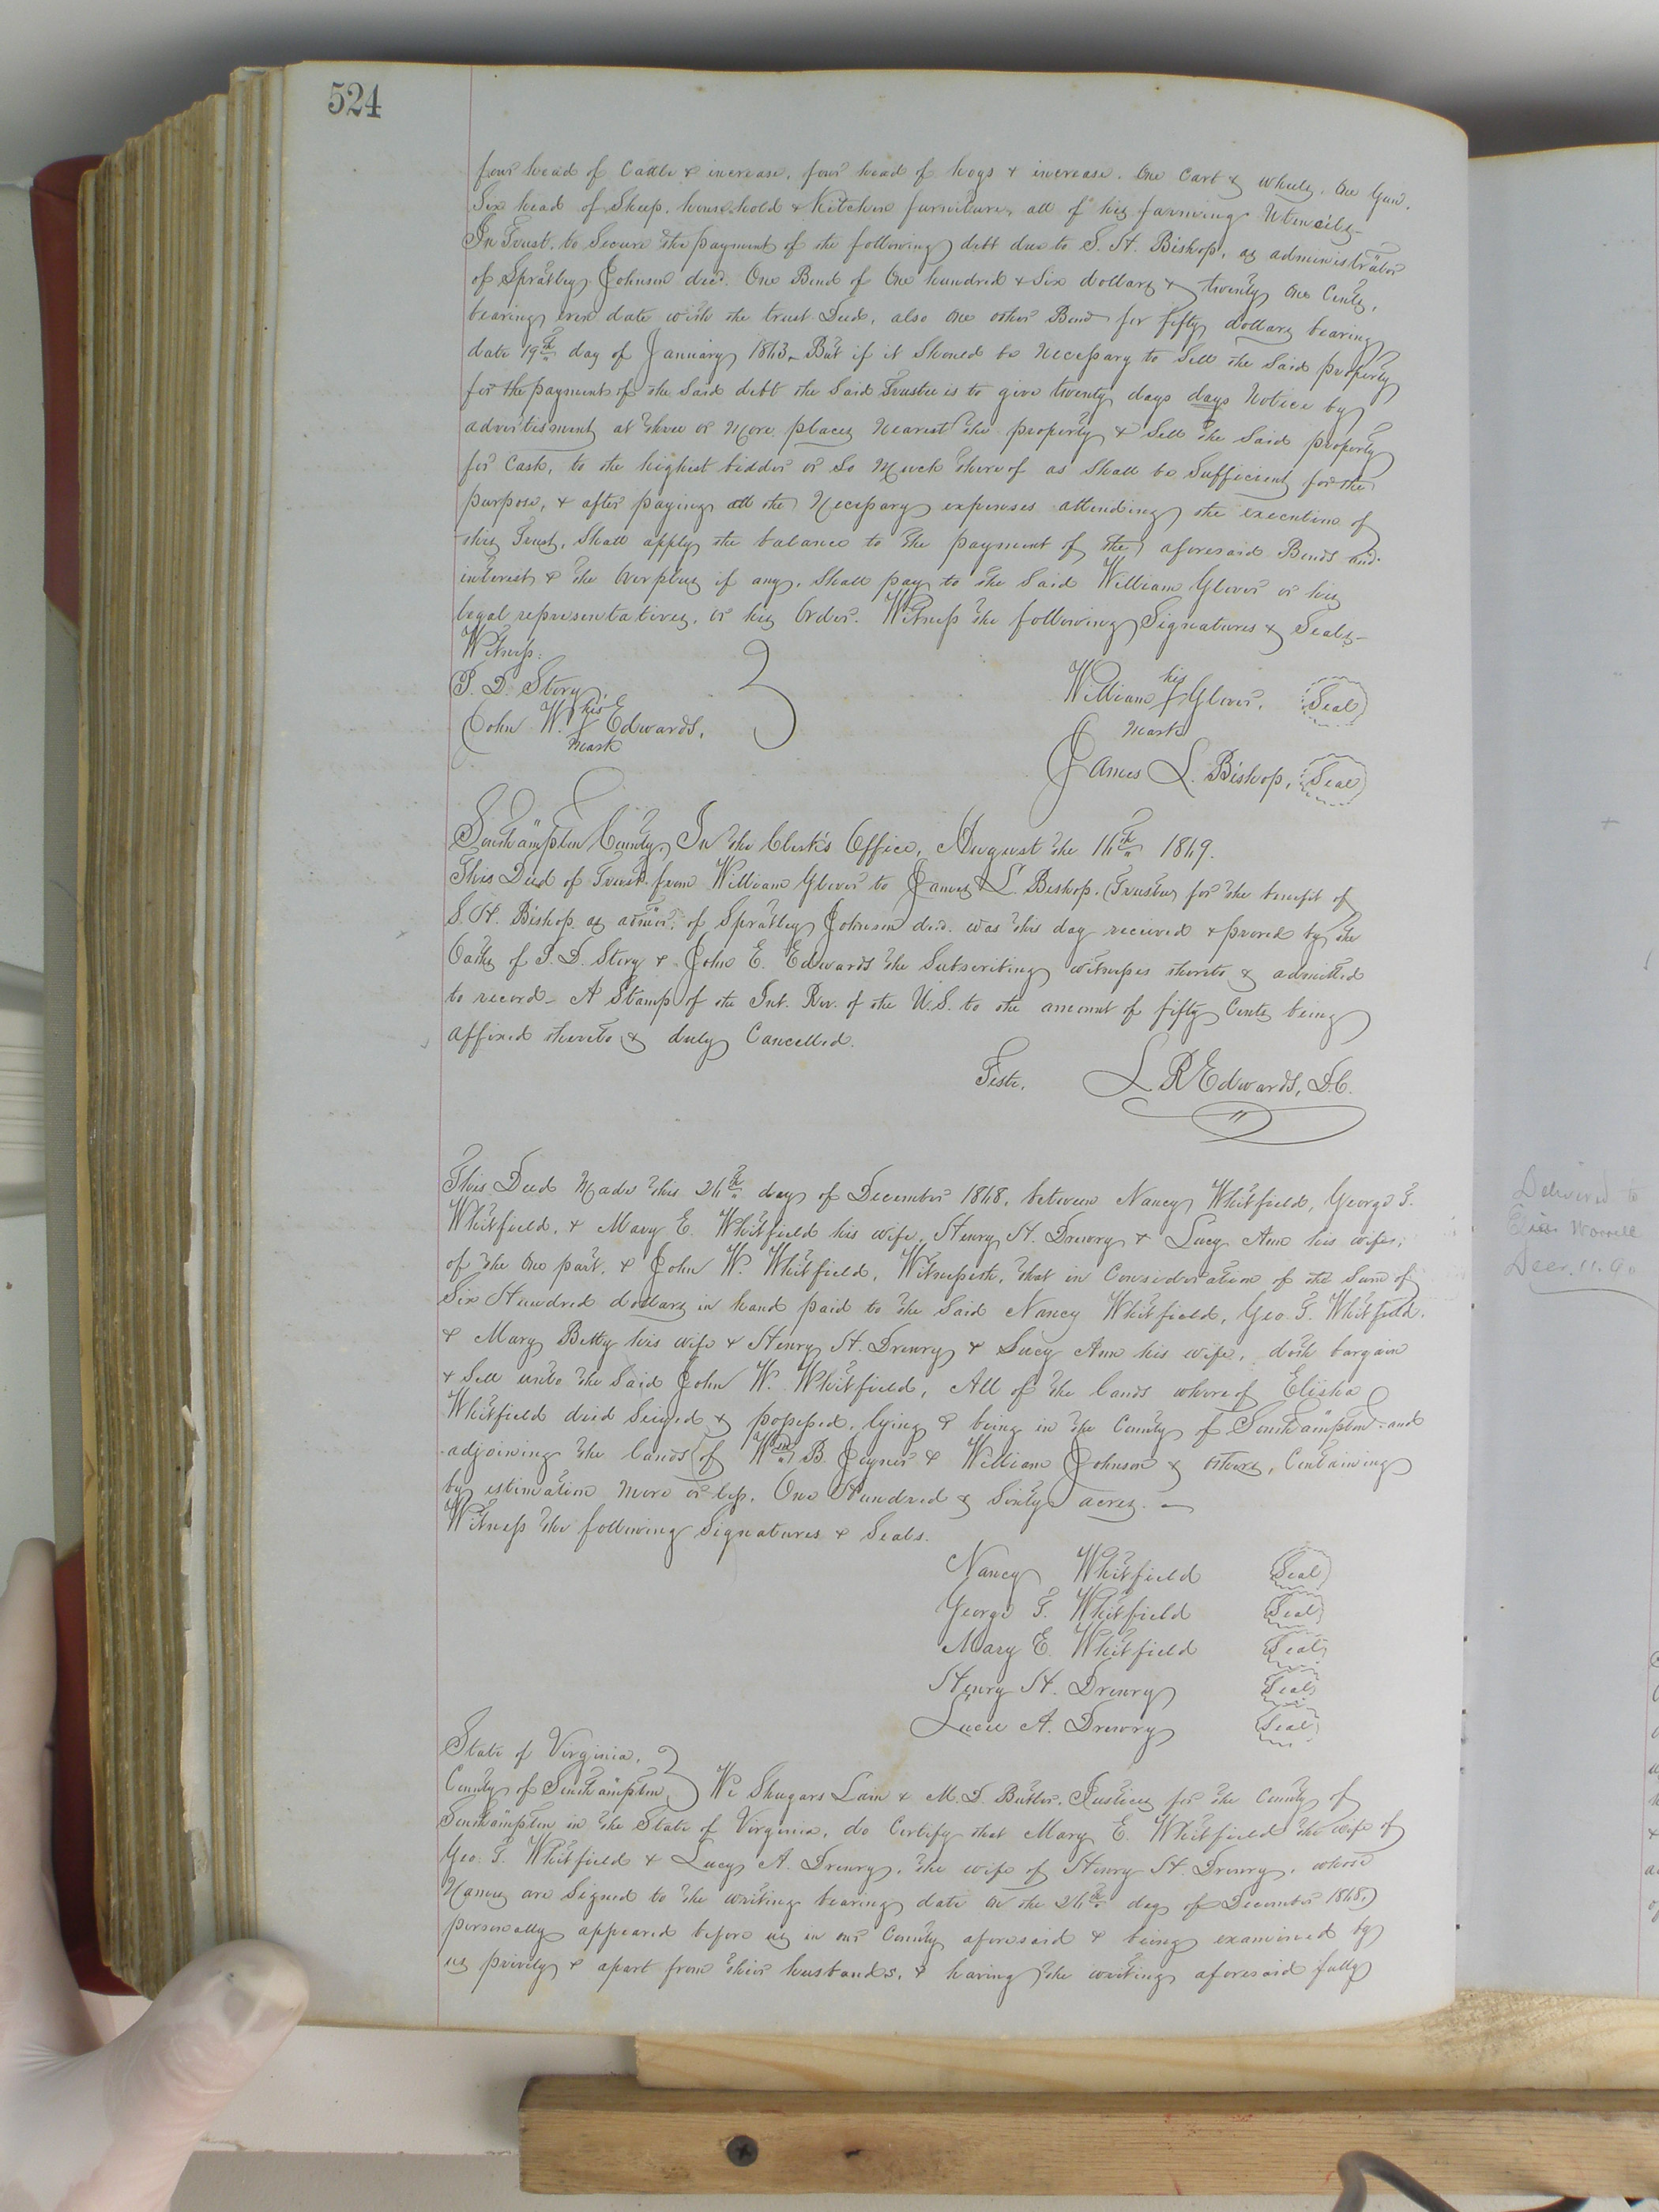 524
four head of Cattle & increase, four head of hogs & increase. One Cart & wheels, One Gun,
Six head of Sheep, household & Kitchen furniture, all of his farming Utensils—
In Trust, to Secure the payment of the following debt due to S. H. Bishop, as administrator
of Spratley Johnson decd. One Bond of One hundred & Six dollars & twenty One Cents,
bearing even date with the trust Deed, also One other Bond for fifty dollars bearing
date 19th day of January 1863. But if it Should be Necessary to Sell the Said property
for the payment of the Said debt the Said Trustee is to give twenty days days Notice by
advertisment at three or More places Nearest the property & Sell the Said property
for Cash, to the highest bidder or So Much thereof as Shall be Sufficient for the
purpose, & after paying all the Necessary expenses attending the execution of
this Trust, Shall apply the balance to the payment of the aforesaid Bonds and
interest & the Overplus if any, Shall pay to the Said William Glover or his
legal representatives, or his Order. Witness the following Signatures & Seals—
Witness:
P. D. Story
his
John W. Edwards,
mark
his
William Glover, Seal
Mark
James L. Bishop, Seal
Southampton County, In the Clerk's Office, August the 16th 1869.
This Deed of Trust from William Glover to James L. Bishop, Trustee for the benefit of
S. H. Bishop as admor. of Spratley Johnson decd. was this day received & proved by the
Oaths of P. D. Story & John E. Edwards the Subscribing witnesses thereto & admitted
to record. A Stamp of the Int. Rev. of the U.S. to the amount of fifty Cents being
affixed thereto & duly Cancelled.
Teste, L R Edwards, D.C.
This Deed Made this 26th day of December 1868, between Nancy Whitfield, George T.
Whitfield, & Mary E. Whitfield his wife, Henry H. Drewry & Lucy Ann his wife,
of the One part, & John W. Whitfield, Witnesseth, that in Consideration of the Sum of
Six Hundred dollars in hand paid to the Said Nancy Whitfield, Geo. T. Whitfield,
& Mary Betty his wife & Henry H. Drewry & Lucy Ann his wife, doth bargain
& Sell unto the Said John W. Whitfield, All of the lands whereof Elisha
Whitfield died Seized & possessed, lying & being in the County of Southampton and
adjoining the lands of Wm B. Joyner & William Johnson & others, Containing
by estimation More or less, One Hundred & Sixty acres.—
Witness the following Signatures & Seals.
Nancy Whitfield Seal
George T. Whitfield Seal
Mary E. Whitfield Seal
Henry H. Drewry Seal
Lucie A. Drewry Seal
State of Virginia,
County of Southampton, We Shugars Lain & M. D. Butler, Justices for the County of
Southampton in the State of Virginia, do Certify that Mary E. Whitfield the wife of
Geo. T. Whitfield & Lucy A. Drewry, the wife of Henry H. Drewry, whose
Names are Signed to the writing bearing date on the 26th day of December 1868,
personally appeared before us in our County aforesaid & being examined by
us privily & apart from their husbands, & having the writing aforesaid fully
Delivered to
Worrell
Decr. 11. 90